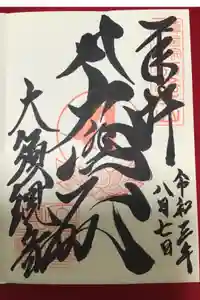 奉拝
令和三年
八月七日
大悲殿
大須観音